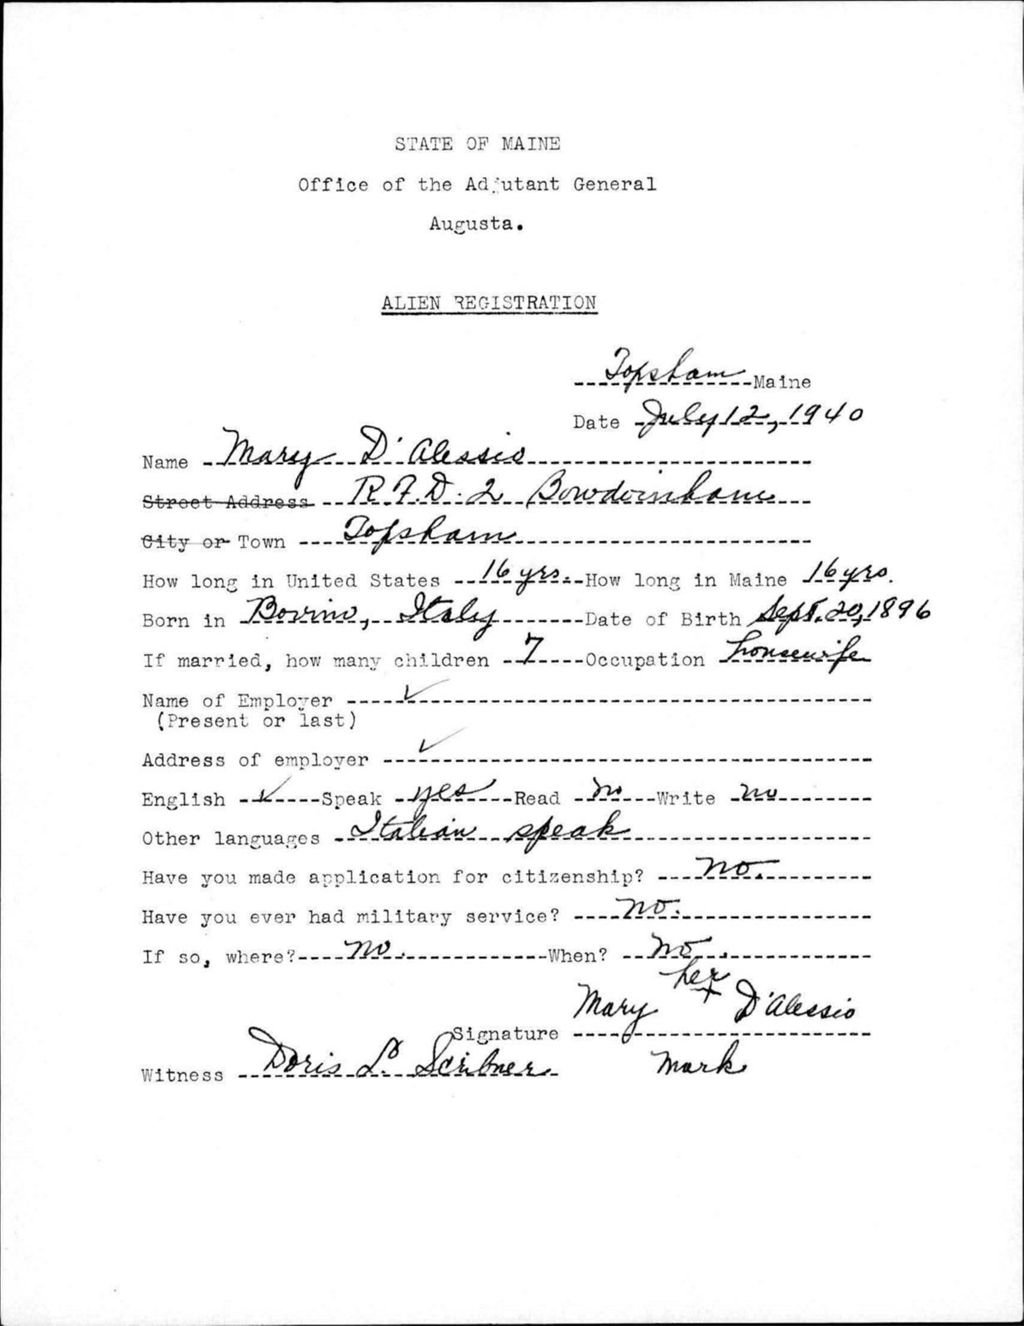 STATE OF MAINE
Office of the Adjutant General
Augusta.
ALIEN REGISTRATION
Topsham Maine
Date July 12, 1940
Name Mary D'Alessio
Street Address R.F.D. 2 Bowdoinham
City or Town Topsham
How long in United States 16 yrs. How long in Maine 16 yrs.
Born in Bovino, Italy Date of Birth Sept. 20, 1896
If married, how many children 7 Occupation housewife
Name of Employer ✓
(Present or last)
Address of employer ✓
English ✓ Speak yes Read no Write no
Other languages Italian speak
Have you made application for citizenship? no.
Have you ever had military service? no.
If so, where? no. When? no.
her
Mary + D'Alessio
Signature
Witness Doris L. Scribner Mark